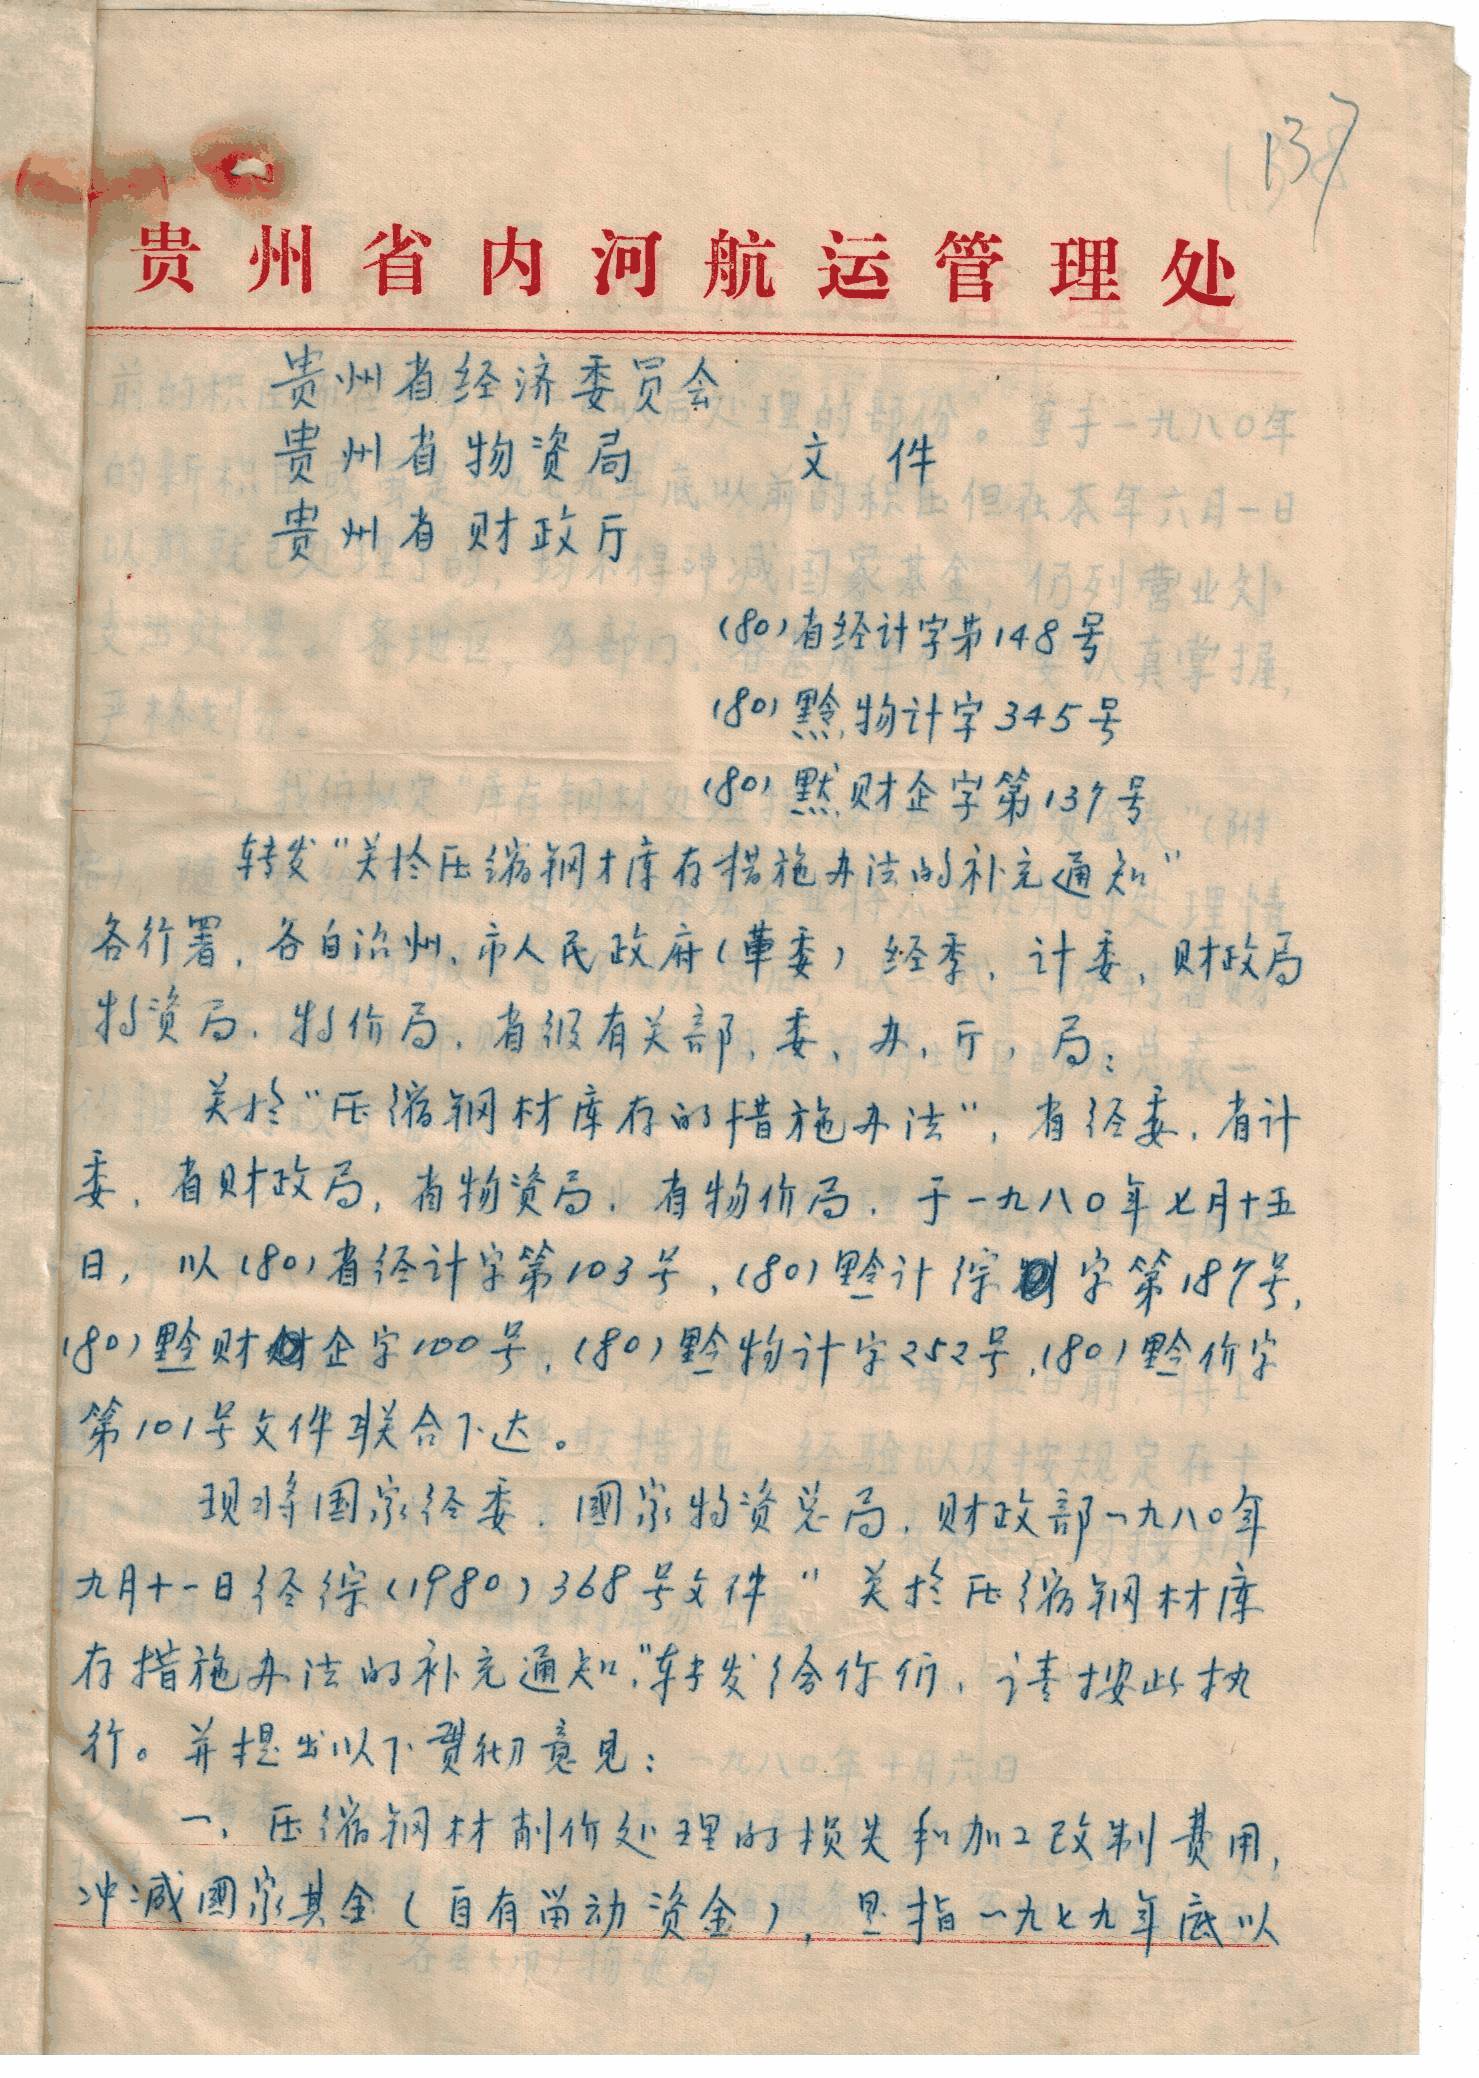 137
贵州省内河航运管理处
贵州省经济委员会
贵州省物资局 文件
贵州省财政厅
(80)省经计字第148号
(80)黔物计字345号
(80)黔财企字第137号
转发“关於压缩钢才库存措施办法的补充通知”
各行署、各自治州、市人民政府(革委)经委、计委、财政局
物资局、物价局、省级有关部、委、办、厅、局:
关於“压缩钢材库存的措施办法”,省经委、省计
委、省财政局,省物资局、省物价局、于一九八〇年七月十五
日,以(80)省经计字第103号、(80)黔计综字第187号,
(80)黔财企字100号、(80)黔物计字252号、(80)黔价字
第101号文件联合下达。
现将国家经委、國家物资总局、财政部一九八〇年
九月十一日经综(1980)368号文件“关於压缩钢材库
存措施办法的补充通知”,转发给你们,请按此执
行。并提出以下贯彻意见:
一、压缩钢材削价处理的损失和加工改制费用,
冲减國家基金(自有留动资金),是指一九七九年底以